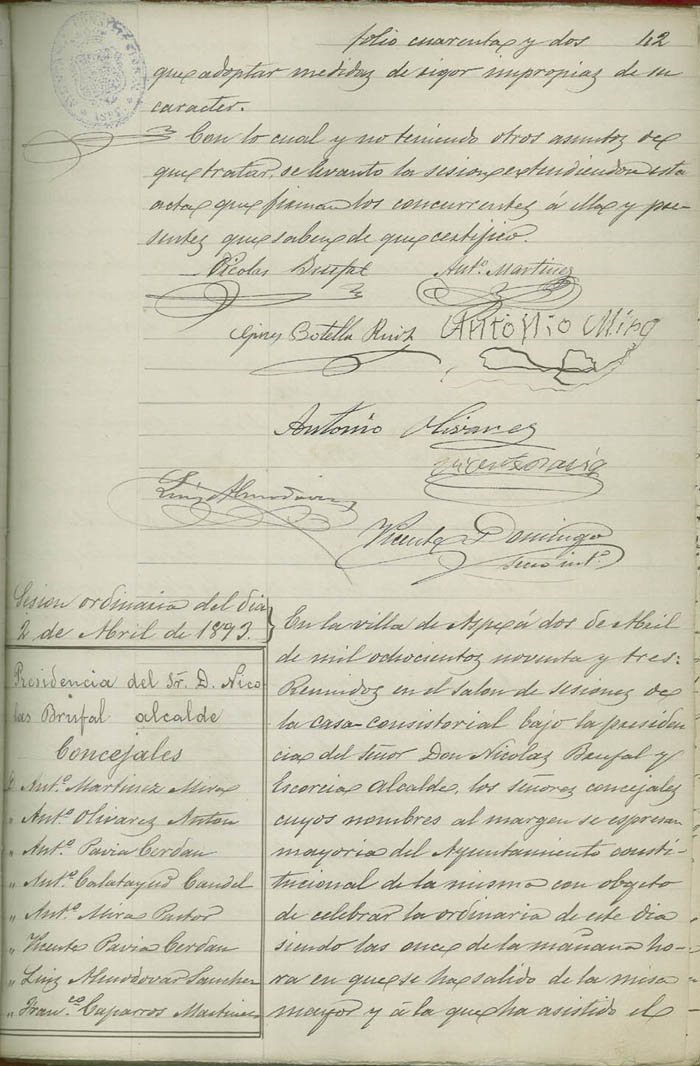 folio cuarenta y dos 42
que adoptar medidas de rigor impropias de su
caracter.
Con lo cual y no teniendo otros asuntos de
que tratar, se levanto la sesion extendiendose esta
acta que firman los concurrentes á ella y pre-
sentes que saben de que certifico.
Nicolas Brufal Antº. Martinez
Gines Botella Ruiz Antonio Miro
Antonio Olivares
Vicente Pavia
Luis Almodovar
Vicente Domingo
secrio intº.
Sesion ordinaria del dia
2 de Abril de 1893.
Presidencia del Sr. D. Nico-
las Brufal alcalde
Concejales
D. Antº. Martinez Mira
" Antº. Olivarez Anton
" Antº. Pavia Cerdán
" Antº. Calatayud Candel
" Antº. Mira Pastor
" Vicente Pavia Cerdan
" Luiz Almodovar Sanchez
" Franco. Caparros Martinez
En la villa de Aspe á dos de Abril
de mil ochocientos noventa y tres:
Reunidos en el salon de sesiones de
la casa-consistorial bajo la presiden
cia del señor Don Nicolas Brufal y
Escorcia Alcalde, los señores concejales
cuyos nombres al margen se espresan
mayoria del Ayuntamiento consti-
tucional de la misma con obgeto
de celebrar la ordinaria de este dia
siendo las once de la mañana ho-
ra en que se ha salido de la misa
mayor y á la que ha asistido el